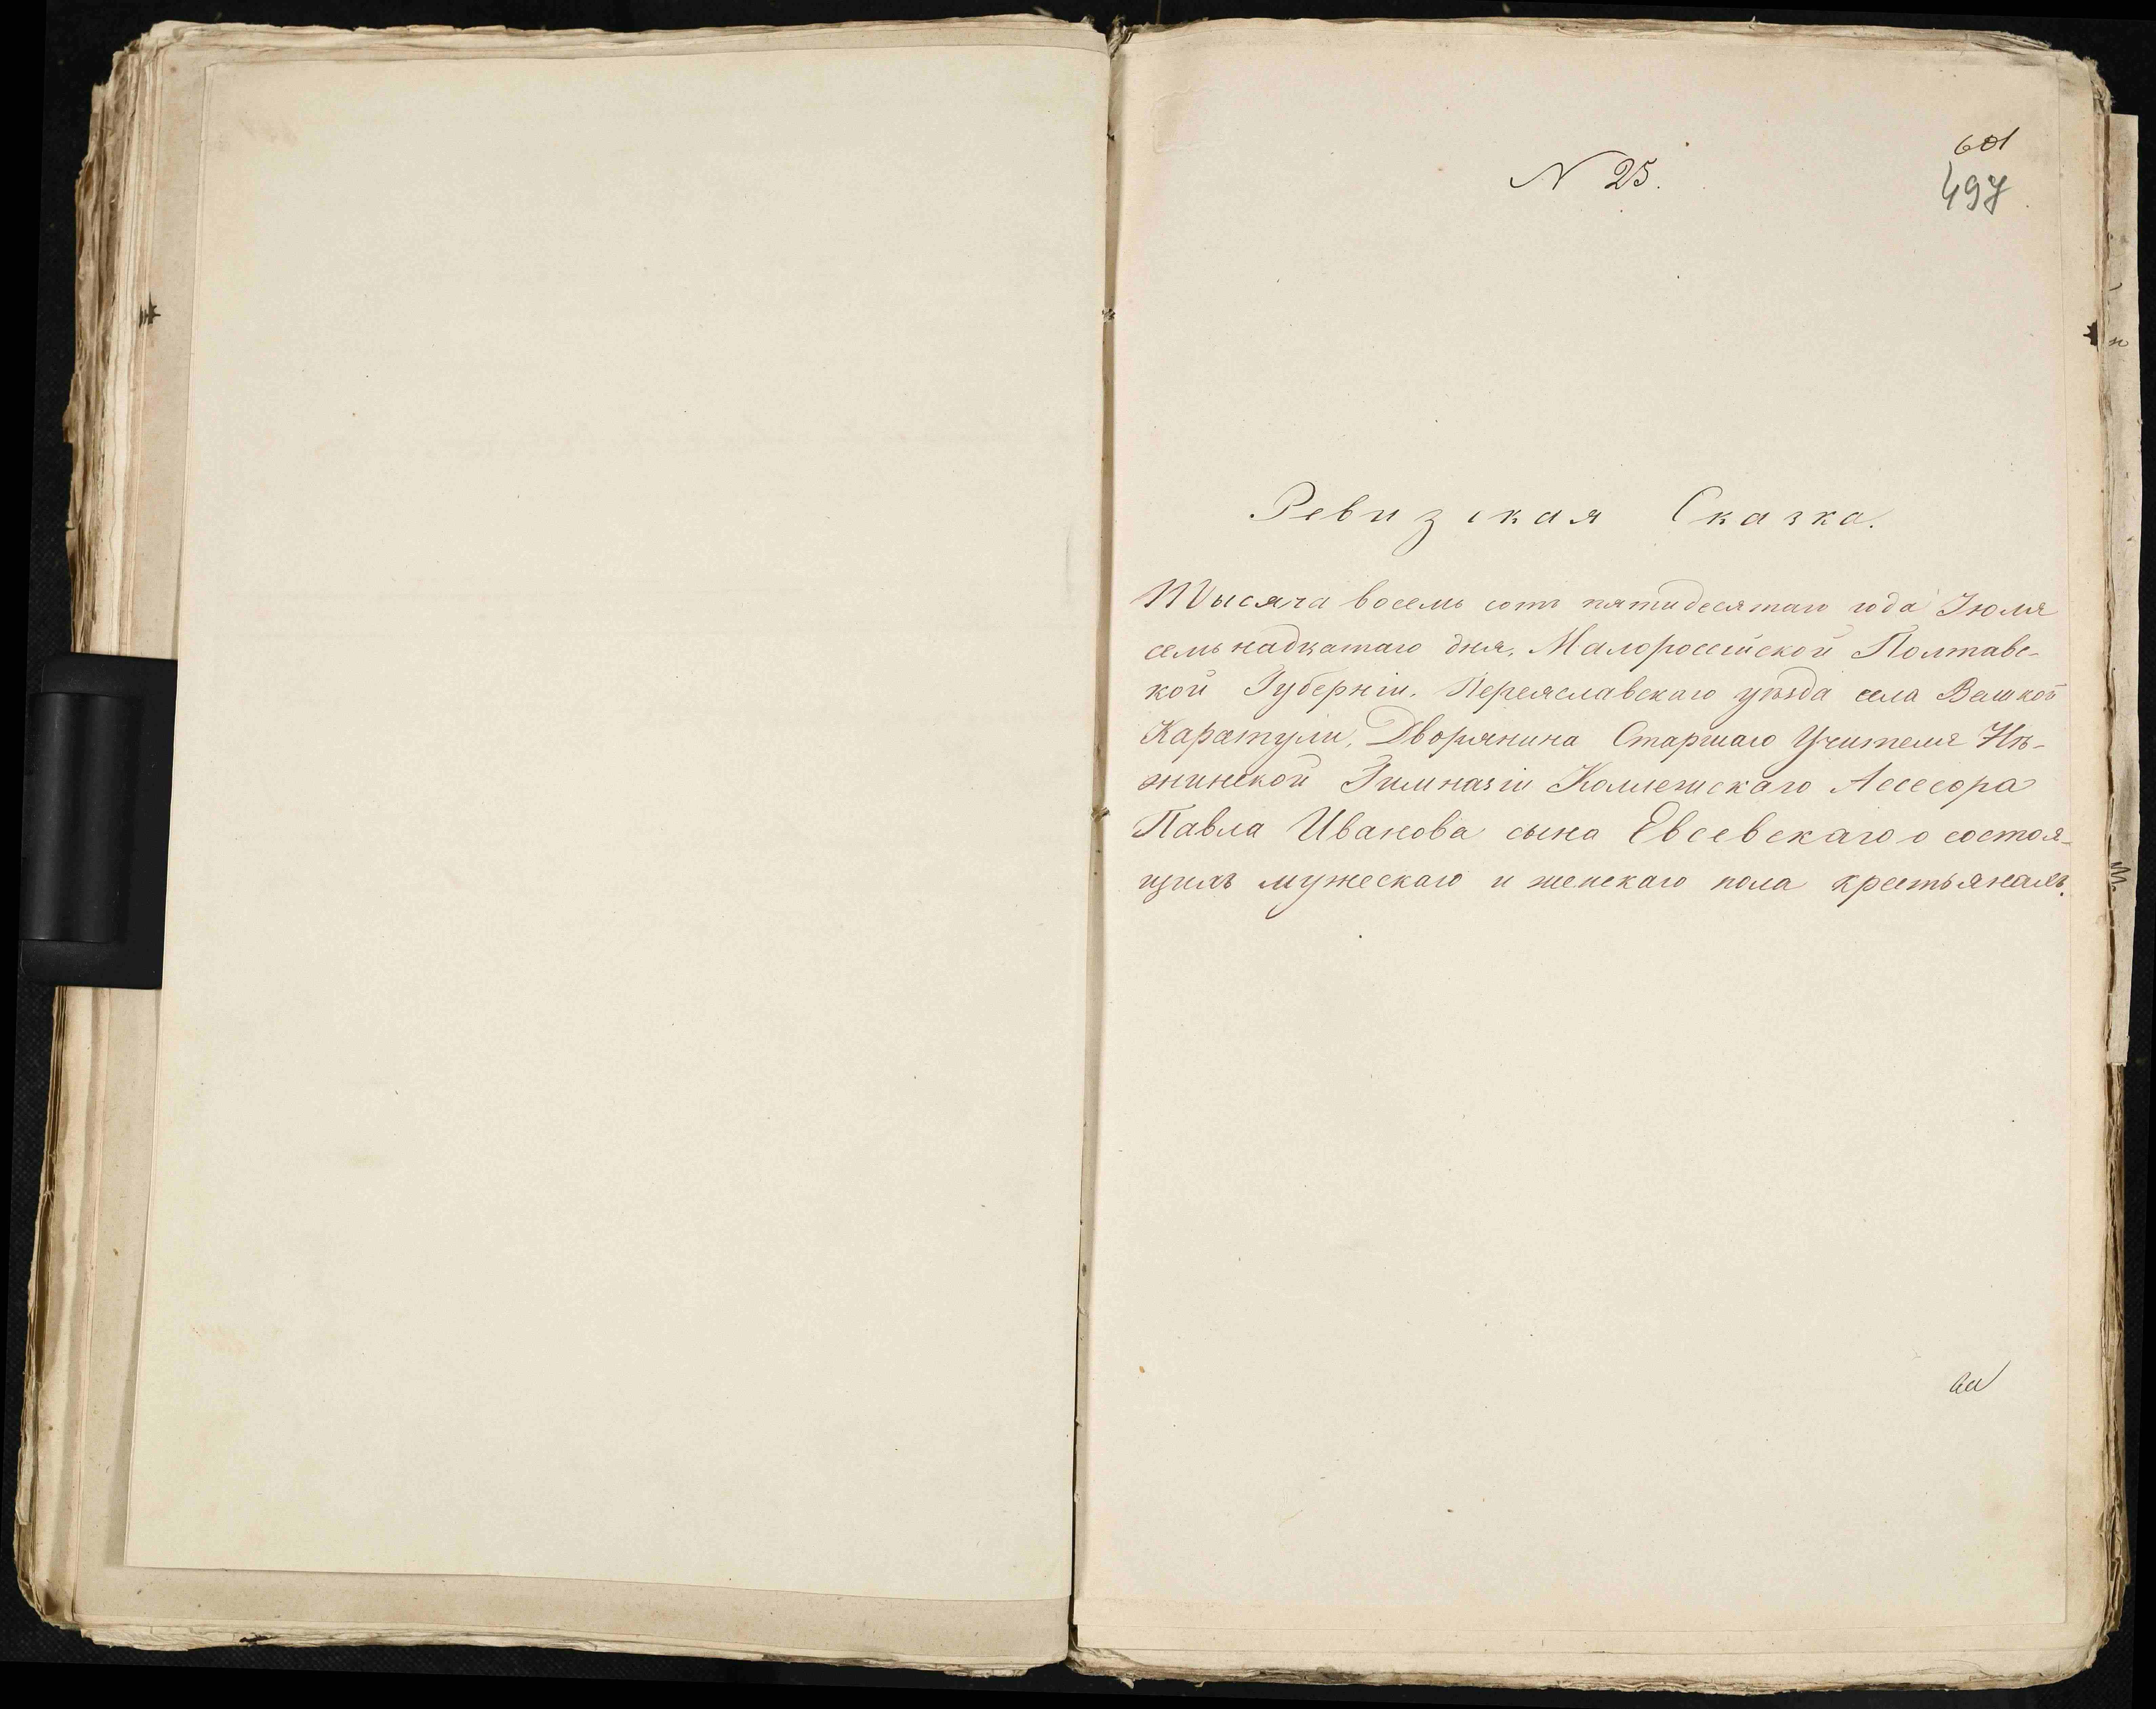 601
N 25.
497
Ревизская Сказка.
Тысяча восемь сотъ пятидесятаго года Іюля
семьнадцатаго дня, Малоросейской Полтавс-
кой Губерніи, Переяславскаго уѣзда села
Каратули, Дворянина Старшаго Учителя Нѣ-
жинской Гимназіи Коллежскаго Асесора
Павла Иванова сына Евсевскаго о состоя-
щихъ мужескаго и женскаго пола крестьянахъ.